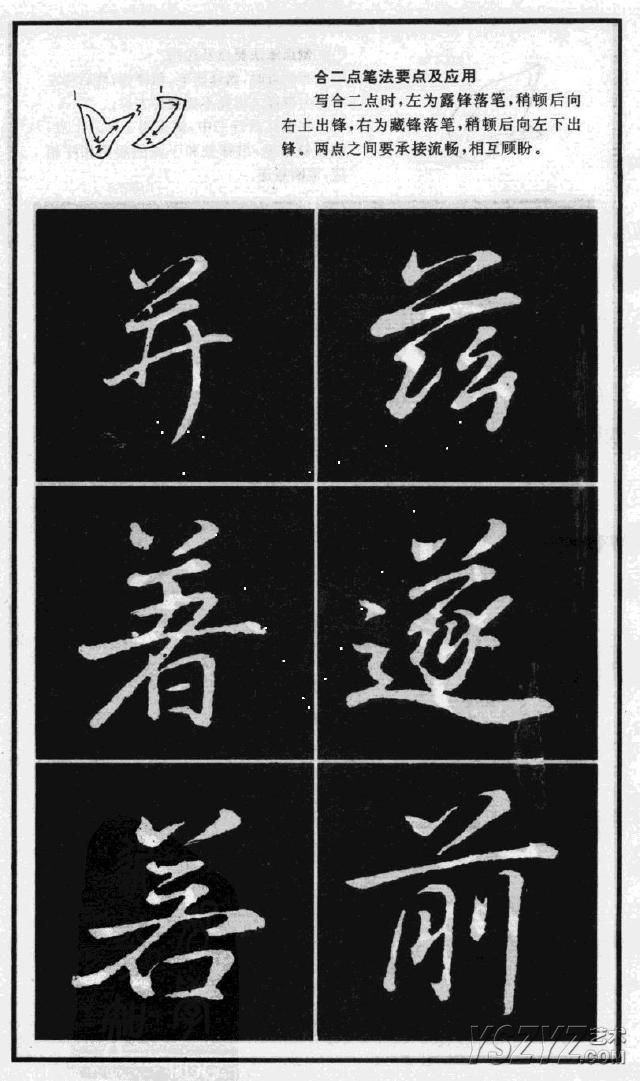 合二点笔法要点及应用
写合二点时，左为露锋落笔，稍顿后向
右上出锋，右为藏锋落笔，稍顿后向左下出
锋。两点之间要承接流畅，相互顾盼。
1 2 3 1 2
并 兹
著 遂
若 前
YSZYZ艺术
.com